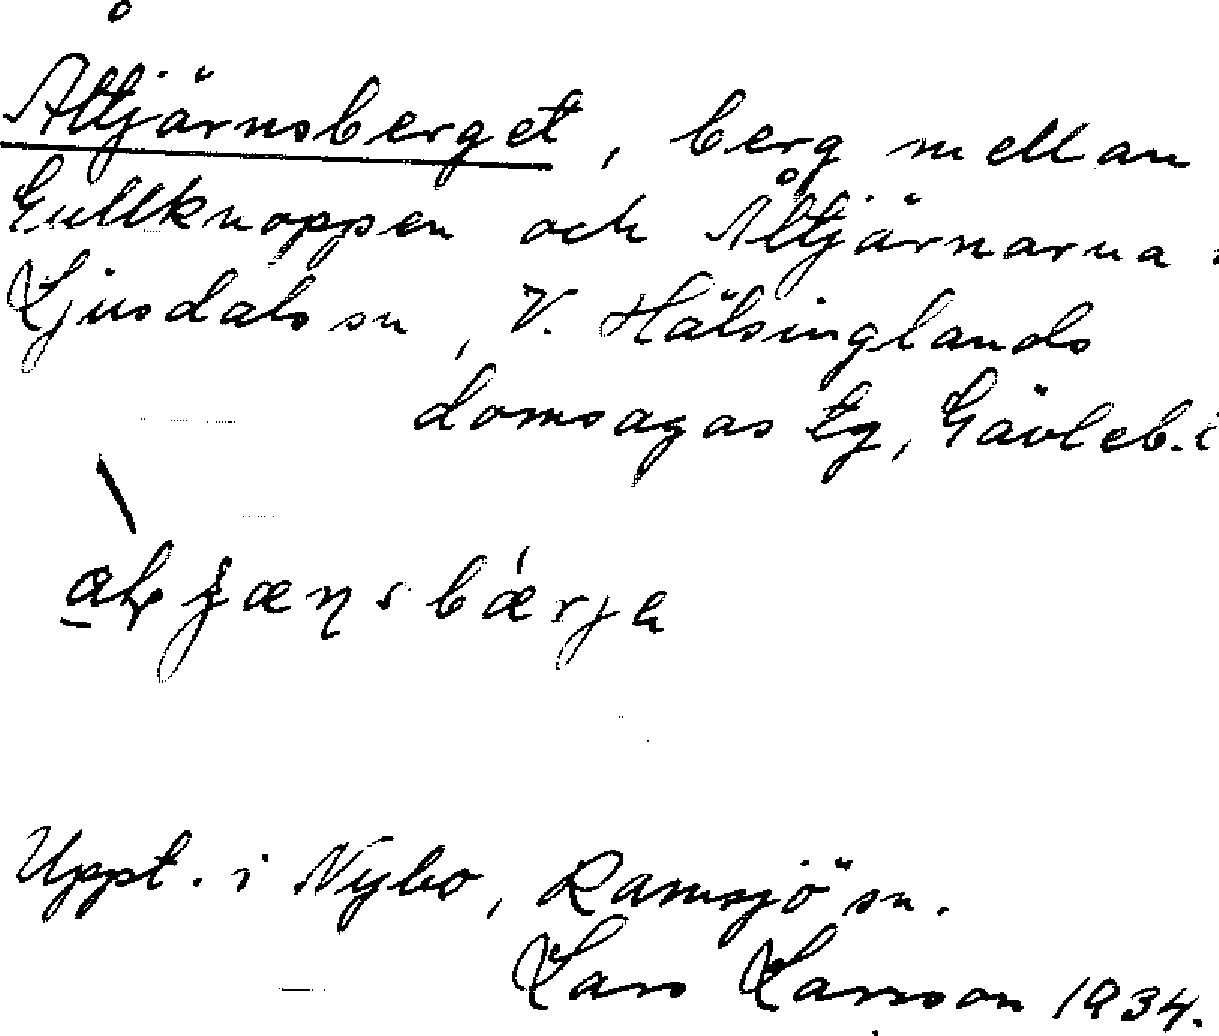 Åltjärnsberget, berg mellan
Gullknoppen och Åltjärnarna i
Ljusdals sn, V. Hälsinglands
domsagas tg, Gävleb. l
Uppt. i Nybo, Ramsjö sn.
Lars Larsson 1934.